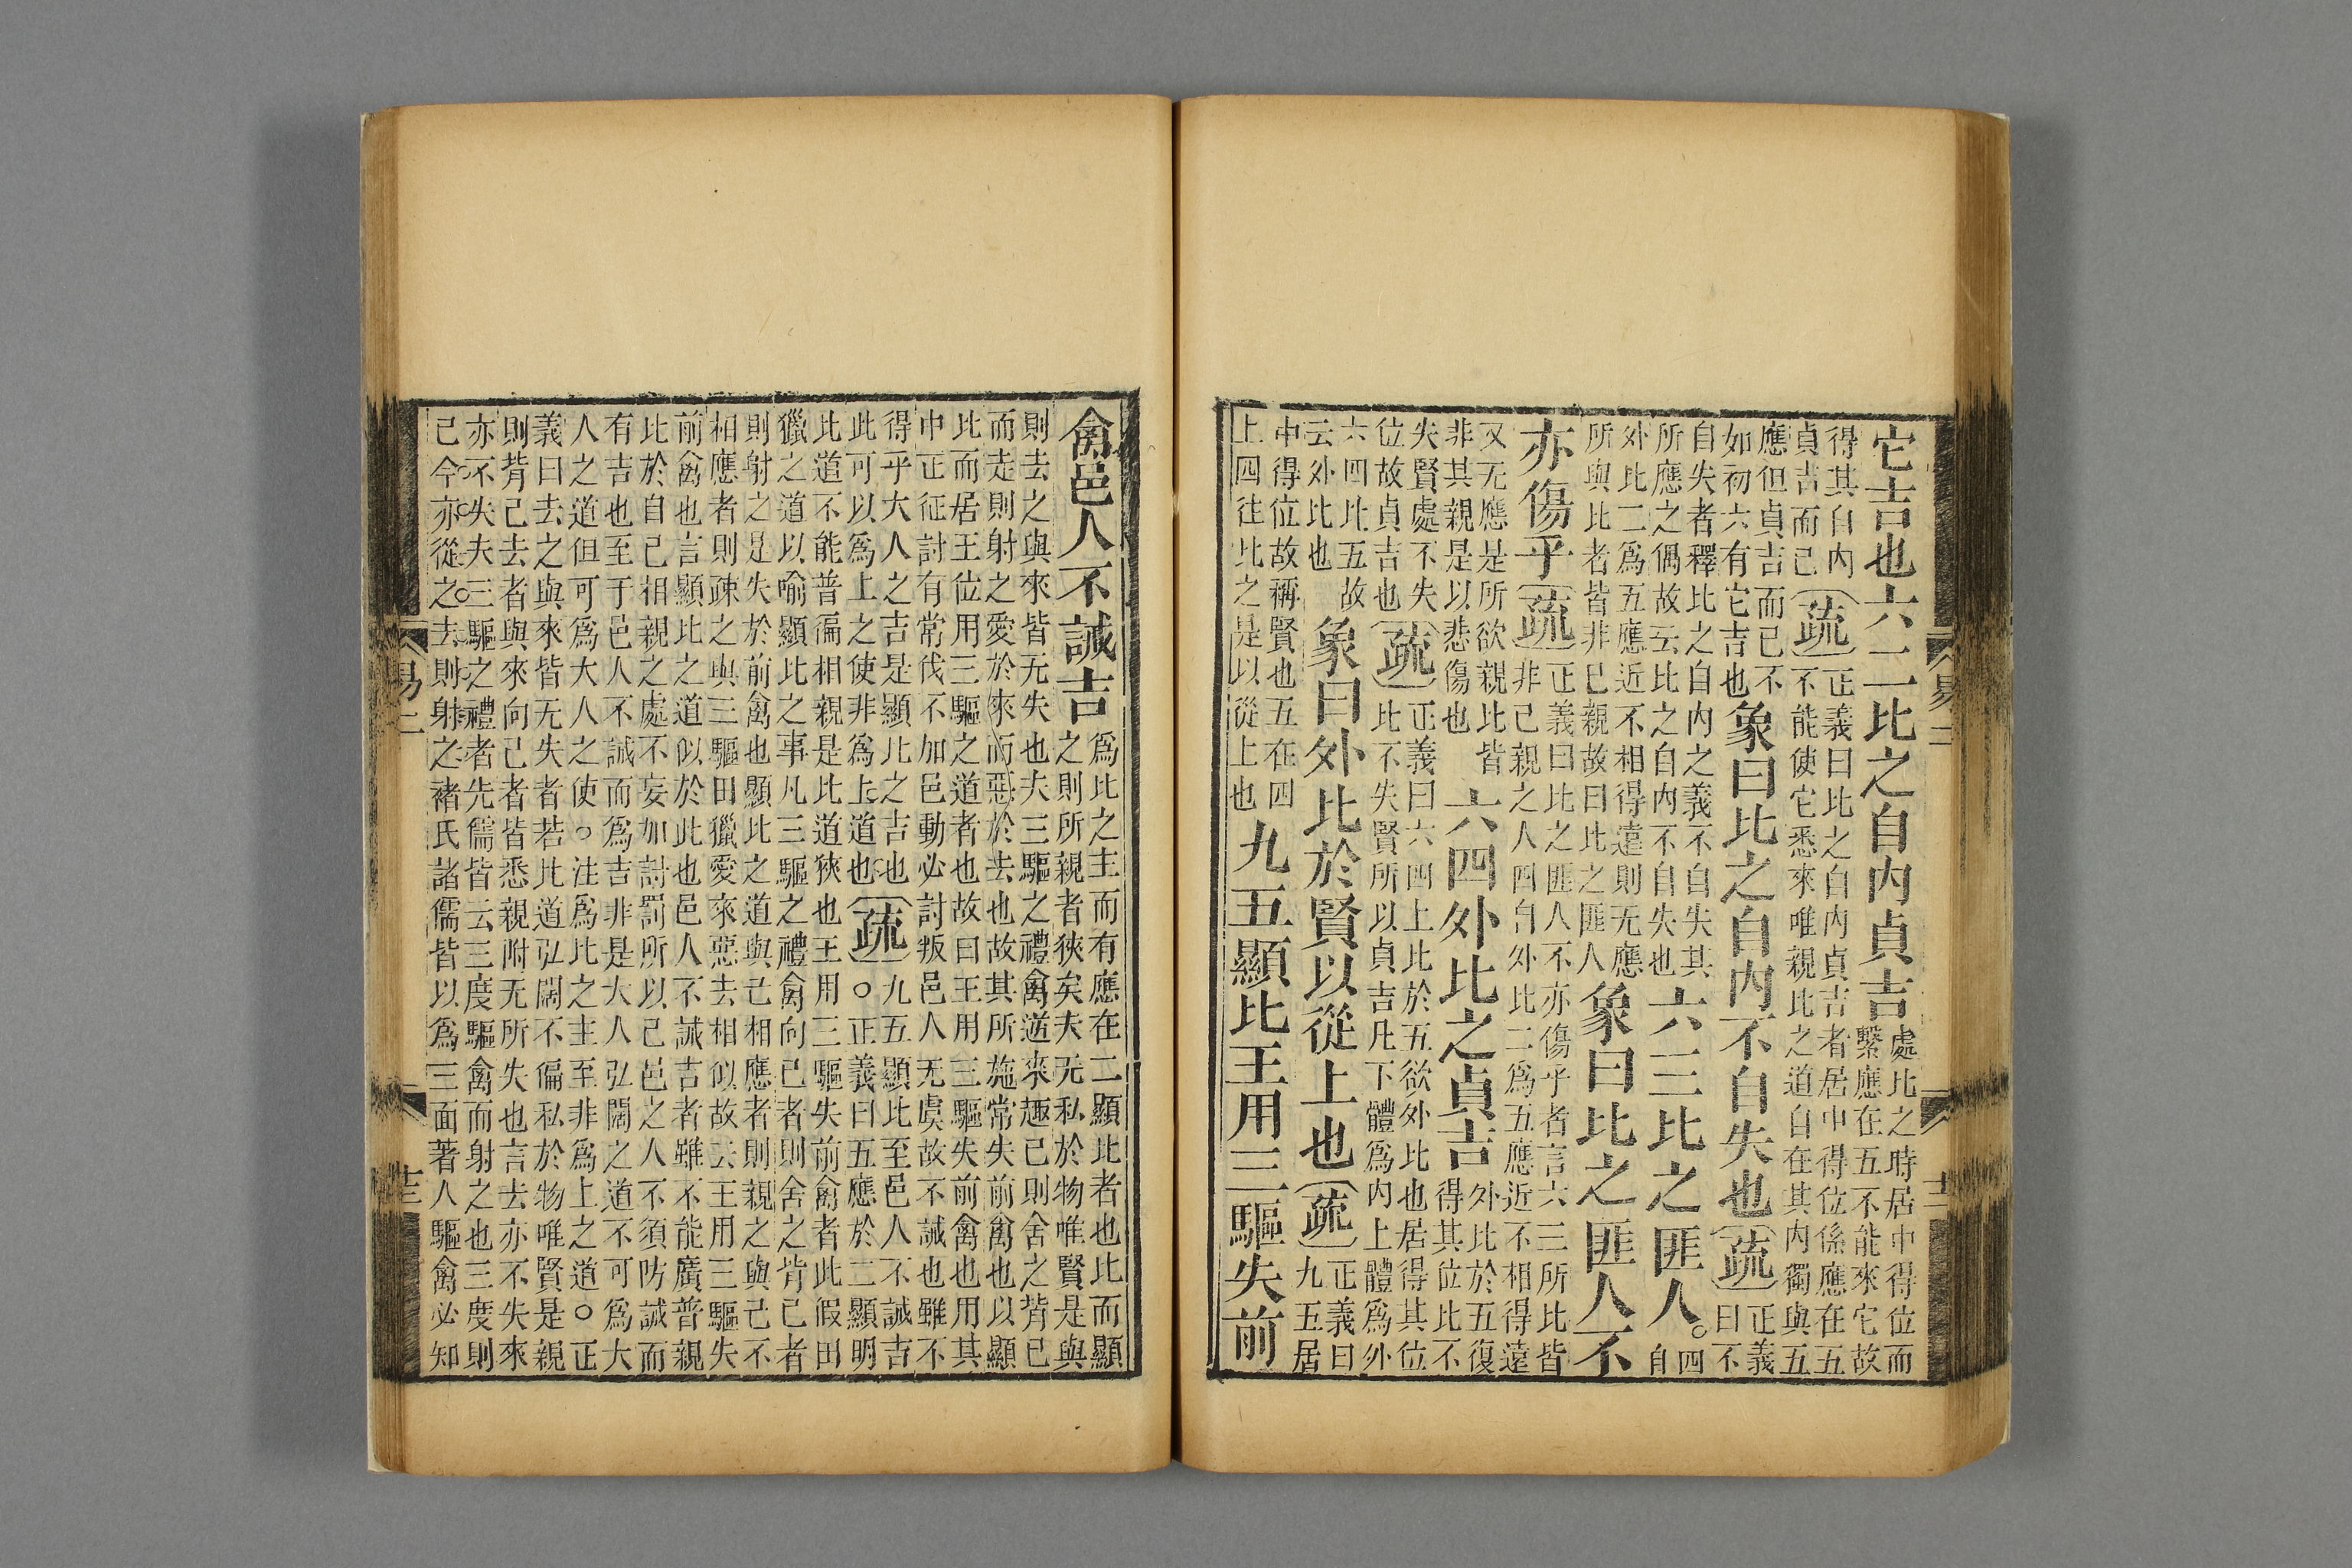 它吉也六二比之自内貞吉處比之時居中得位而
繫應在五不能來它故
得其自内
貞吉而已疏正義曰比之自内貞吉者居中得位係應在五
不能使它悉來唯親比之道自在其内獨與五
應但貞吉而已不
如初六有它吉也象曰比之自内不自失也疏正義
曰不
自失者釋比之自内之義不自失其
所應之偶故云比之自内不自失也六三比之匪人。四
自
外比二爲五應近不相得遠則无應
所與比者皆非已親故曰比之匪人象曰比之匪人不
亦傷乎疏正義曰比之匪人不亦傷乎者言六三所比皆
非己親之人四自外比二爲五應近不相得遠
又无應是所欲親比皆
非其親是以悲傷也六四外比之貞吉外比於五復
得其位比不
失賢處不失
位故貞吉也疏正義曰六四上比於五欲外比也居得其位
比不失賢所以貞吉凡下體爲内上體爲外
六四比五故
云外比也象曰外比於賢以從上也疏正義曰
九五居
中得位故稱賢也五在四
上四往比之是以從上也九五顯比王用三驅失前
易二
十二
禽邑人不誡吉爲比之主而有應在二顯比者也比而顯
之則所親者狹矣夫无私於物唯賢是與
則去之與來皆无失也夫三驅之禮禽逆來趣己則舍之背已
而走則射之愛於來而惡於去也故其所施常失前禽也以顯
比而居王位用三驅之道者也故曰王用三驅失前禽也用其
中正征討有常伐不加邑動必討叛邑人无虞故不誡也雖不
得乎大人之吉是顯比之吉也
此可以爲上之使非爲上道也疏九五顯比至邑人不誡吉
○正義曰五應於二顯明
比道不能普徧相親是比道狹也王用三驅失前禽者此假田
獵之道以喻顯比之事凡三驅之禮禽向己者則舍之背己者
則射之是失於前禽也顯比之道與己相應者則親之與己不
相應者則疎之與三驅田獵愛來惡去相似故云王用三驅失
前禽也言顯比之道似於此也邑人不誡吉者雖不能廣普親
比於自己相親之處不妄加討罰所以己邑之人不須防誡而
有吉也至于邑人不誡而爲吉非是大人弘闊之道不可爲大
人之道但可爲大人之使○注爲比之主至非爲上之道○正
義曰去之與來皆无失者若比道弘闊不偏私於物唯賢是親
則背己去者與來向己者皆悉親附无所失也言去亦不失來
亦不失夫三驅之禮者先儒皆云三度驅禽而射之也三度則
己今亦從之去則射之褚氏諸儒皆以爲三面著人驅禽必知
易二
十三